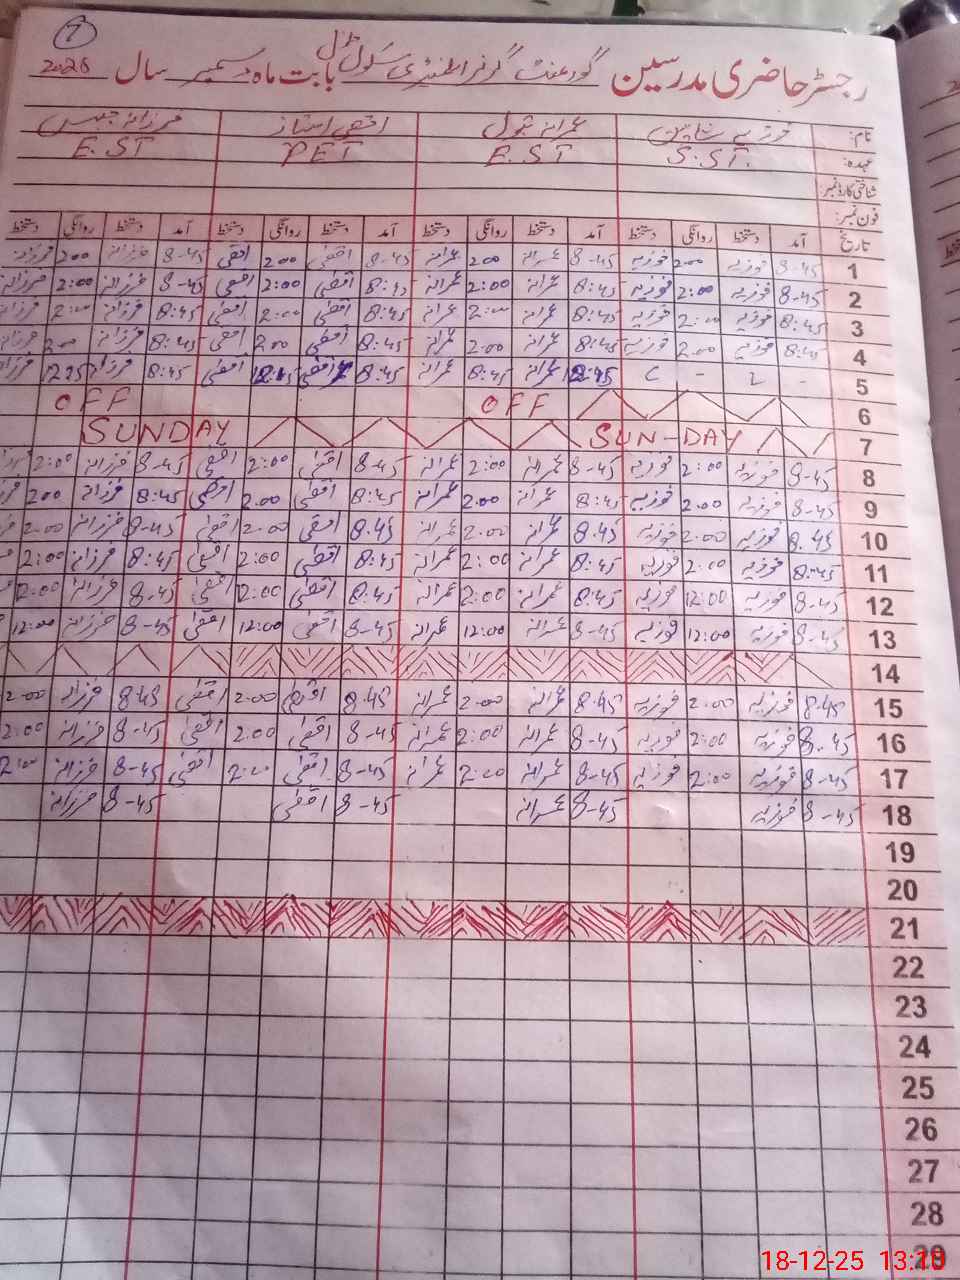 7
رجسٹر حاضری مدرسین گورنمنٹ گرلز ایلیمنٹری سکول ماڈل بابت ماہ دسمبر سال
نام: فوزیہ شاہین عمرانہ بتول اقصٰی امتیاز فرزانہ جبیں
عہدہ: S.ST. E.ST PET E.ST
شناختی کارڈ نمبر:
فون نمبر:
تاریخ آمد دستخط روانگی دستخط آمد دستخط روانگی دستخط آمد دستخط روانگی دستخط آمد دستخط روانگی دستخط
1 8-45 فوزیہ 200 فوزیہ 8-45 عمرانہ 200 عمرانہ 8-45 اقصٰی 200 اقصٰی 8-45 فرزانہ 200 فرزانہ
2 8-45 فوزیہ 2:00 فوزیہ 8:45 عمرانہ 2:00 عمرانہ 8:45 اقصٰی 2:00 اقصٰی 8-45 فرزانہ 2:00 فرزانہ
3 8:45 فوزیہ 2:00 فوزیہ 8:45 عمرانہ 2:00 عمرانہ 8:45 اقصٰی 2:00 اقصٰی 8:45 فرزانہ 2:00 فرزانہ
4 8:45 فوزیہ 2.00 فوزیہ 8:45 عمرانہ 2.00 عمرانہ 8:45 اقصٰی 200 اقصٰی 8:45 فرزانہ 200 فرزانہ
5 - - عمرانہ 8:45 عمرانہ 8:45 اقصٰی اقصٰی 8:45 فرزانہ فرزانہ
6 OFF OFF
7 SUN-DAY SUNDAY
8 8-45 فوزیہ 2:00 فوزیہ 8-45 عمرانہ 2:00 عمرانہ 8-45 اقصٰی 2:00 اقصٰی 8-45 فرزانہ 2:00
9 8-45 فوزیہ 2.00 فوزیہ 8:45 عمرانہ 2.00 عمرانہ 8:45 اقصٰی 2.00 اقصٰی 8:45 فرزانہ 200
10 8.45 فوزیہ 2:00 فوزیہ 8.45 عمرانہ 2.00 عمرانہ 8.45 اقصٰی 2.00 اقصٰی 8-45 فرزانہ 2.00
11 8:45 فوزیہ 2:00 فوزیہ 8:45 عمرانہ 2:00 عمرانہ 8:45 اقصٰی 2:00 اقصٰی 8:45 فرزانہ 2:00
12 8-45 فوزیہ 12:00 فوزیہ 8:45 عمرانہ 2:00 عمرانہ 8:45 اقصٰی 12:00 اقصٰی 8-45 فرزانہ 12:00
13 8-45 فوزیہ 12:00 فوزیہ 8-45 عمرانہ 12:00 عمرانہ 8-45 اقصٰی 12:00 اقصٰی 8-45 فرزانہ 12:00
14
15 8.45 فوزیہ 2.00 فوزیہ 8.45 عمرانہ 2.00 عمرانہ 8.45 اقصٰی 2.00 اقصٰی 8.45 فرزانہ 2.00
16 8-45 فوزیہ 2:00 فوزیہ 8-45 عمرانہ 2:00 عمرانہ 8-45 اقصٰی 2:00 اقصٰی 8-45 فرزانہ 2:00
17 8-45 فوزیہ 2:00 فوزیہ 8-45 عمرانہ 2:00 عمرانہ 8-45 اقصٰی 2:00 اقصٰی 8-45 فرزانہ
18 8-45 فوزیہ 8-45 عمرانہ 8-45 اقصٰی 8-45 فرزانہ
19
20
21
22
23
24
25
26
27
28
29
18-12-25